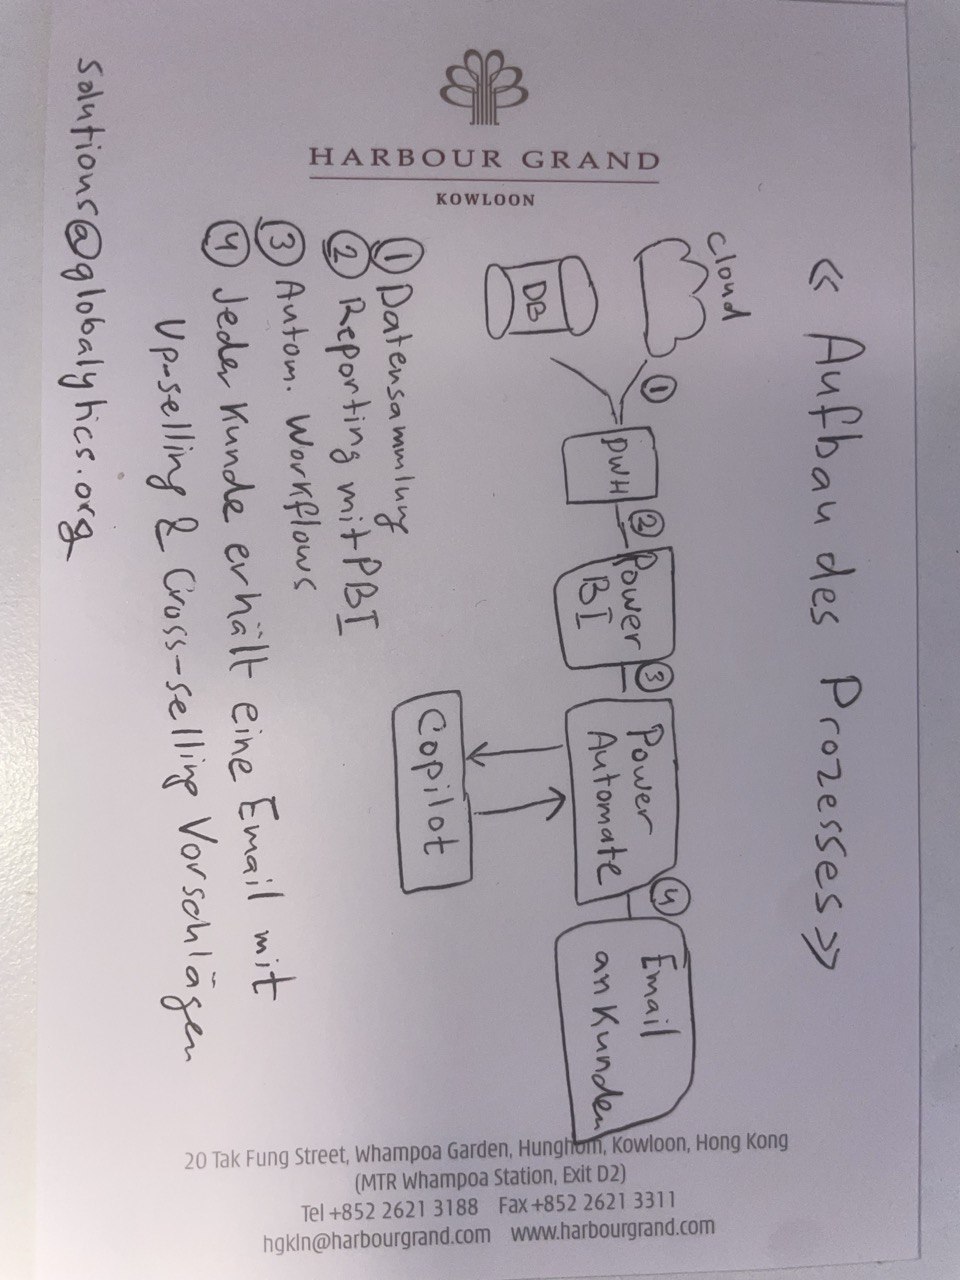 HARBOUR GRAND
KOWLOON
« Aufbau des Prozesses »
Cloud
DB
①
DWH
②
Power
BI
③
Power
Automate
④
Email
an Kunden
Copilot
① Datensammlung
② Reporting mit PBI
③ Autom. Workflows
④ Jeder Kunde erhält eine Email mit
Up-selling & Cross-selling Vorschlägen
solutions@globalytics.org
20 Tak Fung Street, Whampoa Garden, Hunghom, Kowloon, Hong Kong
(MTR Whampoa Station, Exit D2)
Tel +852 2621 3188 Fax +852 2621 3311
hgkln@harbourgrand.com www.harbourgrand.com